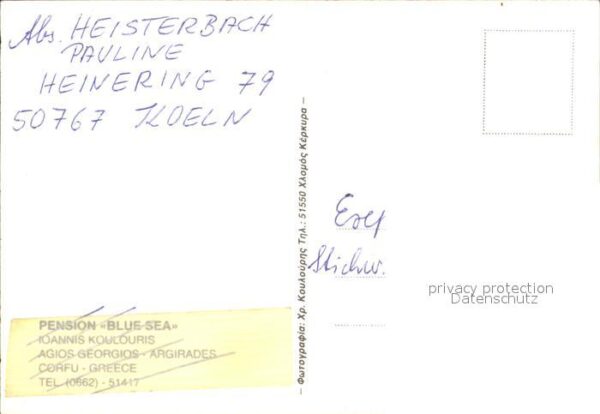 Abs. HEISTERBACH
PAULINE
HEINERING 79
50767 KOELN
PENSION «BLUE SEA»
IOANNIS KOULOURIS
AGIOS GEORGIOS - ARGIRADES
CORFU - GREECE
TEL. (0662) - 51417
— Φωτογραφία: Χρ. Κουλούρης Τηλ.: 51550 Χλομός Κέρκυρα —
Stichw.
privacy protection
Datenschutz